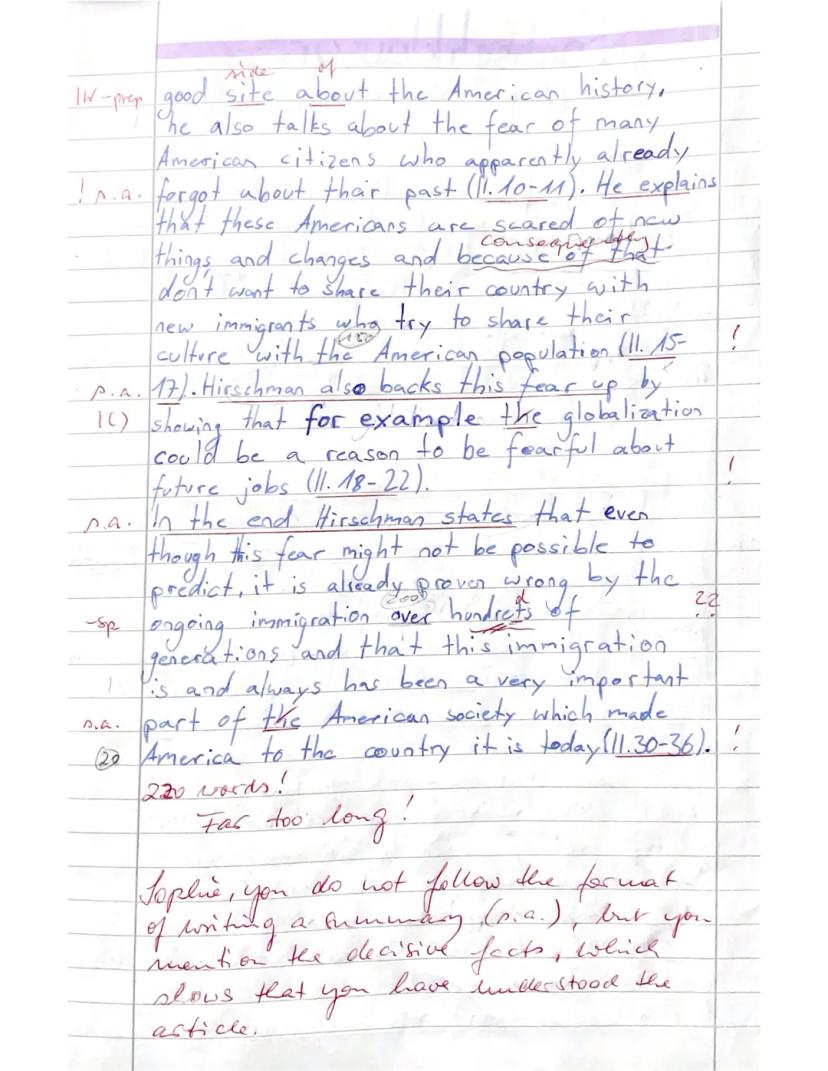 side of
1W-prep good site about the American history,
he also talks about the fear of many
American citizens who apparently already
! s.a. forgot about thair past (ll. 10-11). He explains
that these Americans are scared of new
consequently
things and changes and because of that
don't want to share their country with
new immigrants who try to share their
150
culture with the American population (ll. 15- !
s.a. 17). Hirschman also backs this fear up by
1() showing that for example the globalization
could be a reason to be fearful about
future jobs (ll. 18-22). !
s.a. In the end Hirschman states that even
though this fear might not be possible to
predict, it is already proven wrong by the
200 d
-Sp ongoing immigration over hundrets of ??
generations and that this immigration
is and always has been a very important
s.a. part of the American society which made
20 America to the country it is today (ll. 30-36). !
220 words!
Far too long!
Sophie, you do not follow the format
of writing a summary (s.a.), but you
mention the decisive facts, which
shows that you have understood the
article.